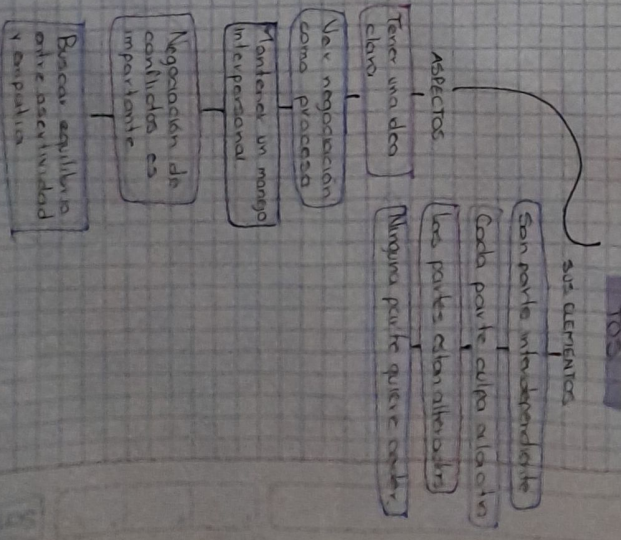 TOS
SUS ELEMENTOS
Son parte interdependiente
Cada parte culpa a la otra
Las partes estan alteradas
Ninguna parte quiere ceder.
ASPECTOS
Tener una idea
clara
Ver negociación
como proceso
Mantener un manejo
interpersonal
Negociación de
conflictos es
importante
Buscar equilibrio
entre asertividad
y empatia